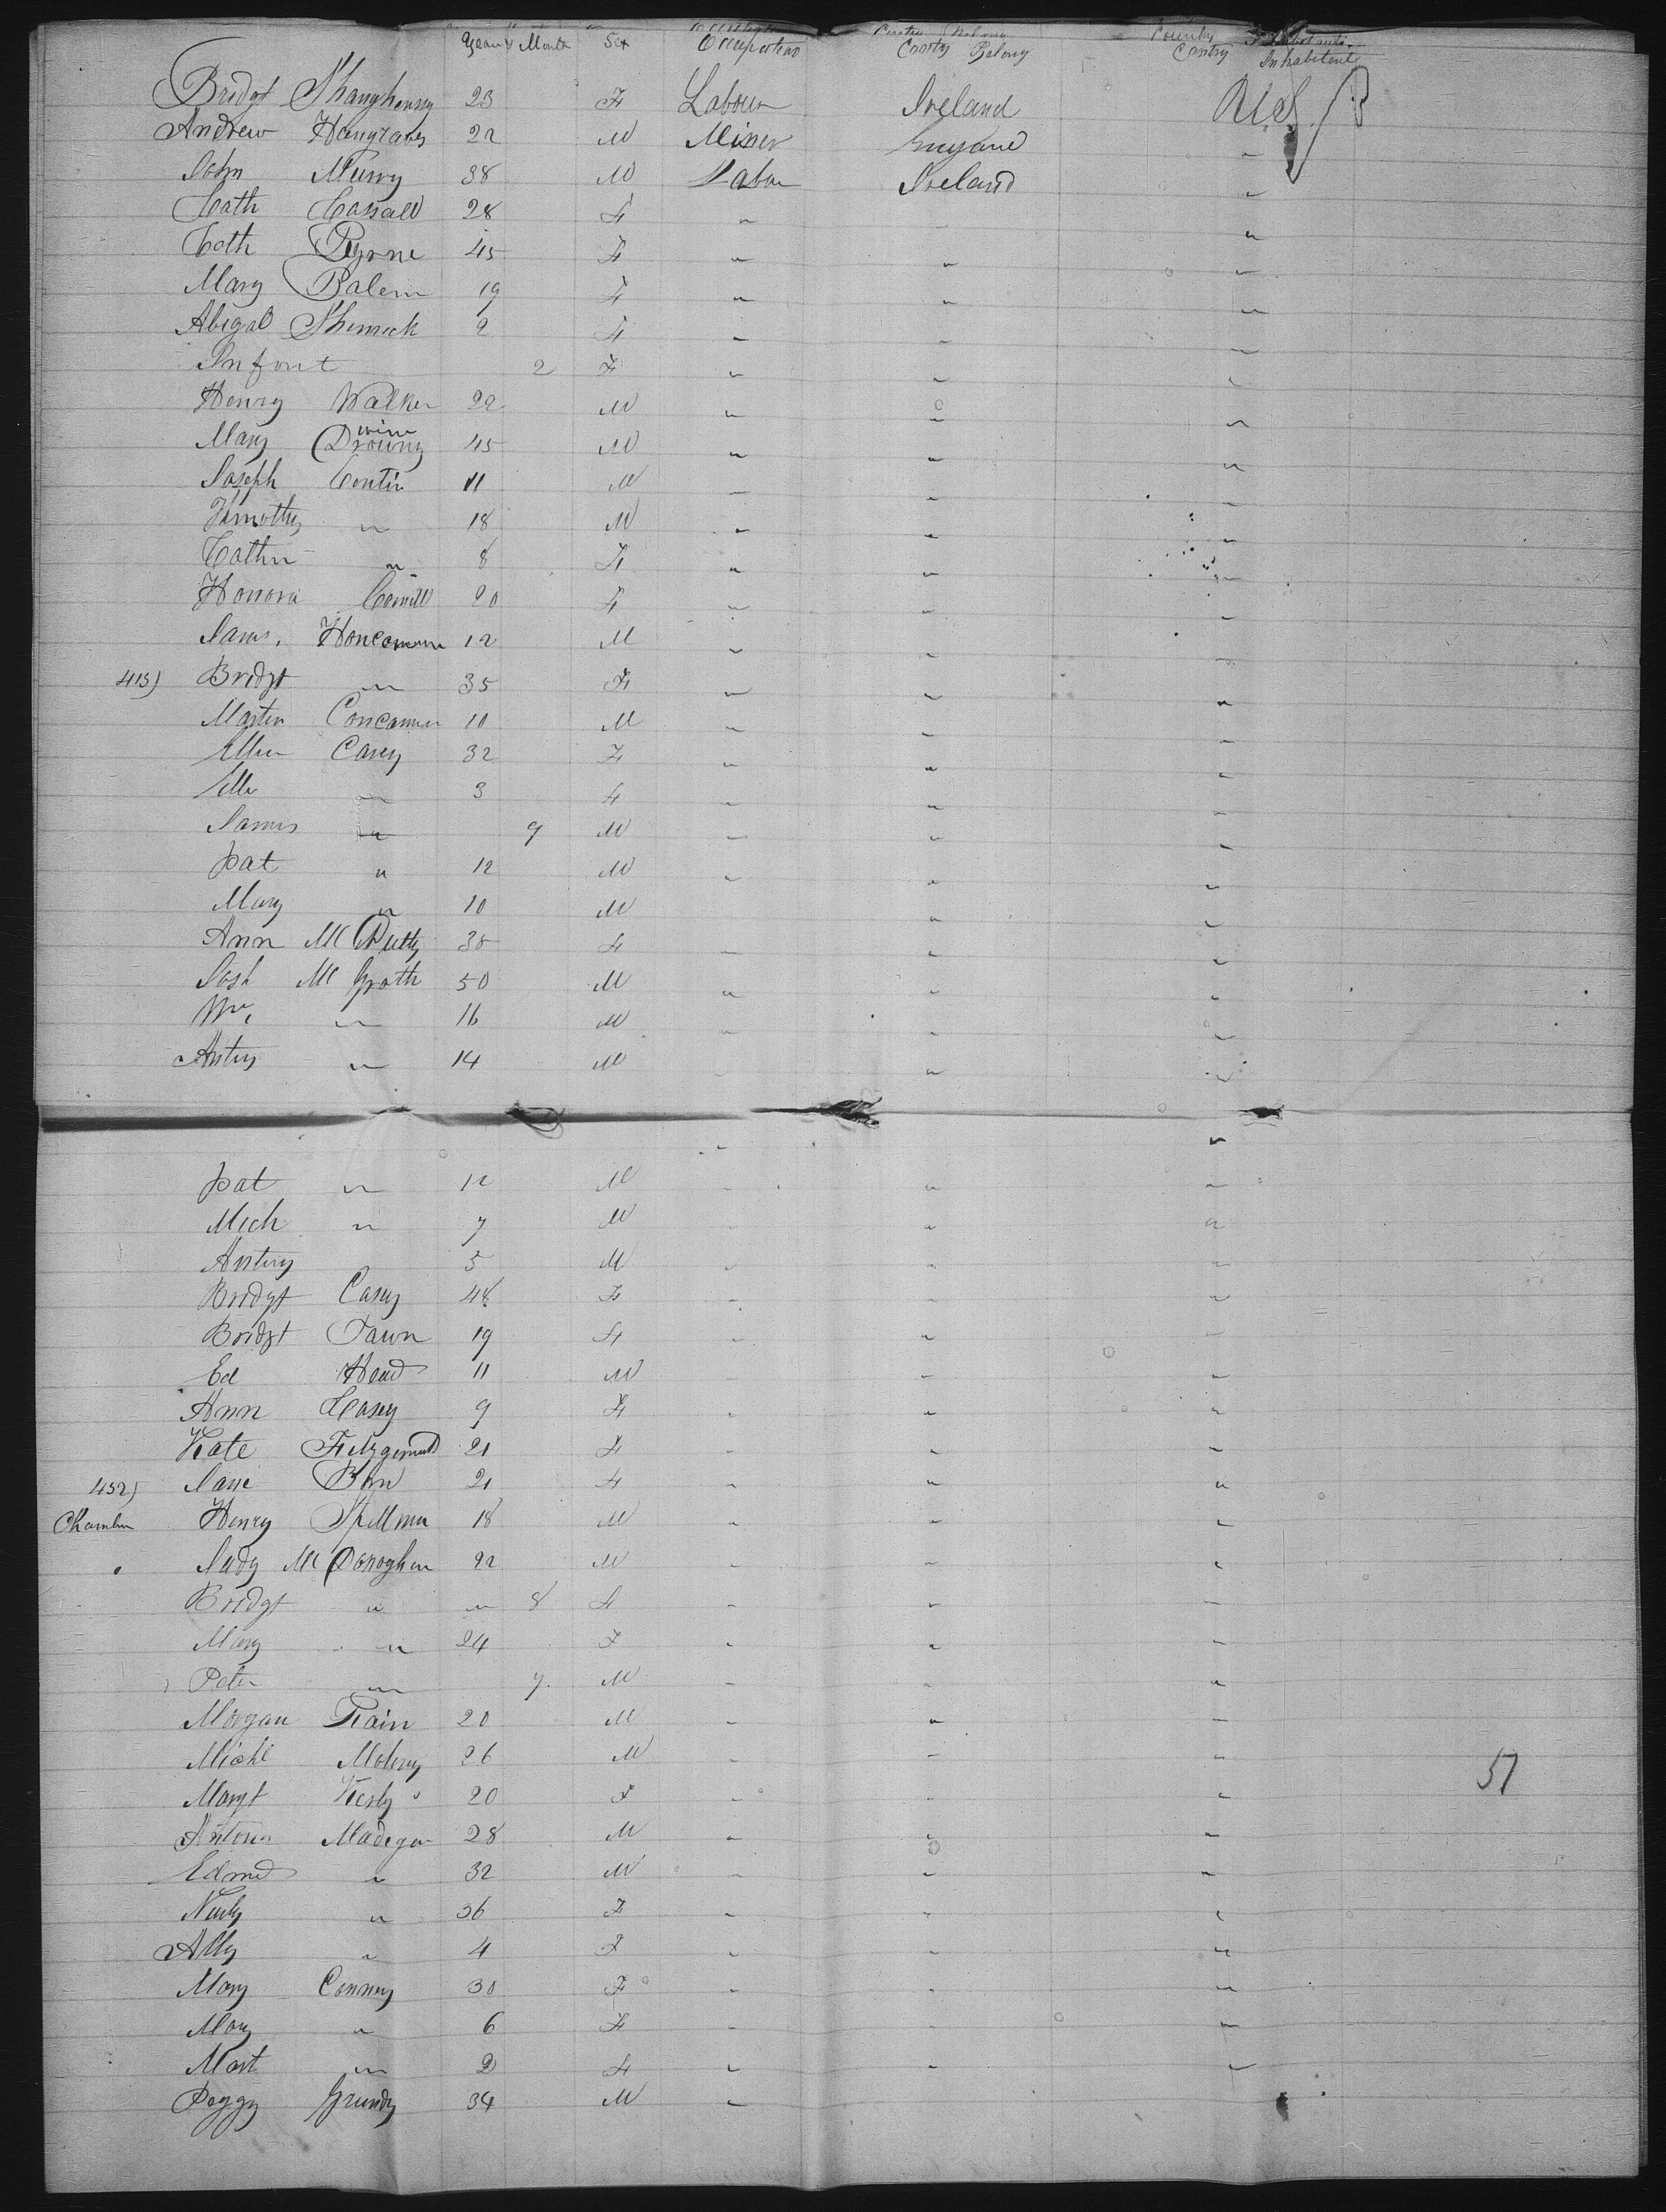 Years Month Sex Occupation Contry Belong Contry Inhabitant
Bridgt Shanghnssy 23 F Labour Ireland U.S.
Andrew Hangraves 22 M Miner "
John Murry 38 M Labou Ireland "
Cath Cassall 28 F " "
Cath Byrne 45 F " " "
Mary Balem 19 F " " "
Abigal 2 F " " "
Infant 2 F " " "
Henry Walker 22 M " " "
Mary 45 M " " "
Joseph Contin 11 M " " "
Timothy " 18 M " " "
Cathn " 8 F " " "
Honora 20 F " " "
James. 12 M " " "
415) Bridgt " 35 F " " "
Martin Concannen 10 M " " "
Ellen Carey 32 F " " "
Elle " 3 F " " "
James " 9 M " " "
Pat " 12 M " " "
Mary " 10 M " " "
Ann Mc Nutty 30 F " " "
Josh Mc Grath 50 M " " "
Wm " 16 M " " "
Antny " 14 M " " "
Pat " 12 M " " "
Mich " 7 M " " "
Antny 5 M " " "
Bridgt Casey 48 F " " "
Bridgt Fawn 19 F " " "
Ed Head 11 M " " "
Ann Casey 9 F " " "
Kate Fitzgerald 21 F " " "
452) Jane 21 F " " "
Chamber Henry Spellman 18 M " " "
Judy Mc Donoghue 22 M " " "
Bridgt " " 8 F " " "
Mary " 24 F " " "
Peter " 7 M " " "
Morgan 20 M " " "
Michl Molony 26 M " " "
57
Margt 20 F " " "
Antony Madegan 28 M " " "
Edmd " 32 M " " "
" 36 F " " "
Ally " 4 F " " "
Mary Conney 30 F " " "
Mary " 6 F " " "
Mart " 2 F " " "
Peggy Grundy 34 M "